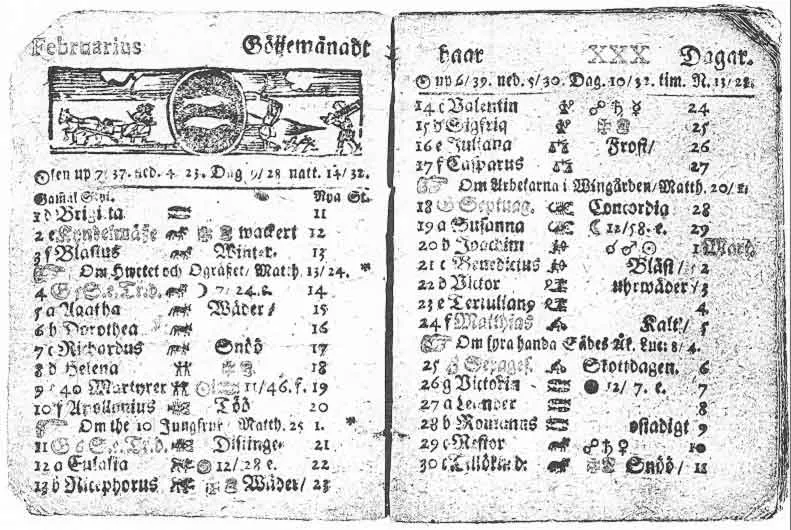 Februarius Göijemånadt
Solen up 7/ 37. ned. 4 23. Dag 9/28 natt. 14/32.
Gamal Styl. Nya St.
1 d Brigitta 11
2 e Kyndelmässe wackert 12
3 f Blasius Winter. 13
Om Hwetet och Ogräset/ Matth. 13/24. *
4 G 5 S. e. Tr. d. ☽ 7/24. e. 14
5 a Agatha Wäder/ 15
6 b Dorothea 16
7 c Richardus Snöö 17
8 d Helena 18
9 e 40 Martyrer 11/46. f. 19
10 f Apollonius Töö 20
Om the 10 Jungfrur/ Matth. 25 1. *
11 G 6 S. e. Tr. d. Distinge 21
12 a Eulalia 12/28 e. 22
13 b Nicephorus Wäder/ 23
haar XXX Dagar.
☉ up 6/39. ned. 5/30. Dag. 10/32. tim. N. 13/28.
14 c Valentin ☍ ♄ ☿ 24
15 d Sigfrid 25
16 e Juliana Frost/ 26
17 f Casparus 27
Om Arbetarna i Wingården/ Matth. 20/1.
18 G Septuag. Concordia 28
19 a Susanna ☾ 12/58. e. 29
20 b Joachim ☌ ♂ ☉ 1 Mart.
21 c Benedictus Bläst/ 2
22 d Victor uhrwäder/ 3
23 e Tertulian9 4
24 f Matthias Kalt/ 5
Om fyra handa Sädes Åk. Luc: 8/4.
25 G Sexages. Skottdagen. 6
26 g Victorin ● 12/ 7. e. 7
27 a Leander 8
28 b Romanus ostadigt 9
29 c Nestor ☍ ♄ ♀ 10
30 c Snöö/ 11